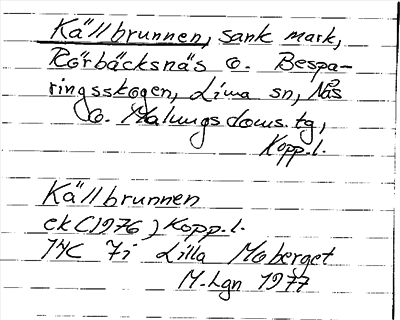 Källbrunnen, sank mark,
Rörbäcksnäs o. Bespa-
ringsskogen, Lima sn, Nås
o. Malungs doms. tg,
Kopp. l.
Källbrunnen
ek (1976) Kopp. l.
17C 7i Lilla Moberget
M-Lgn 1977